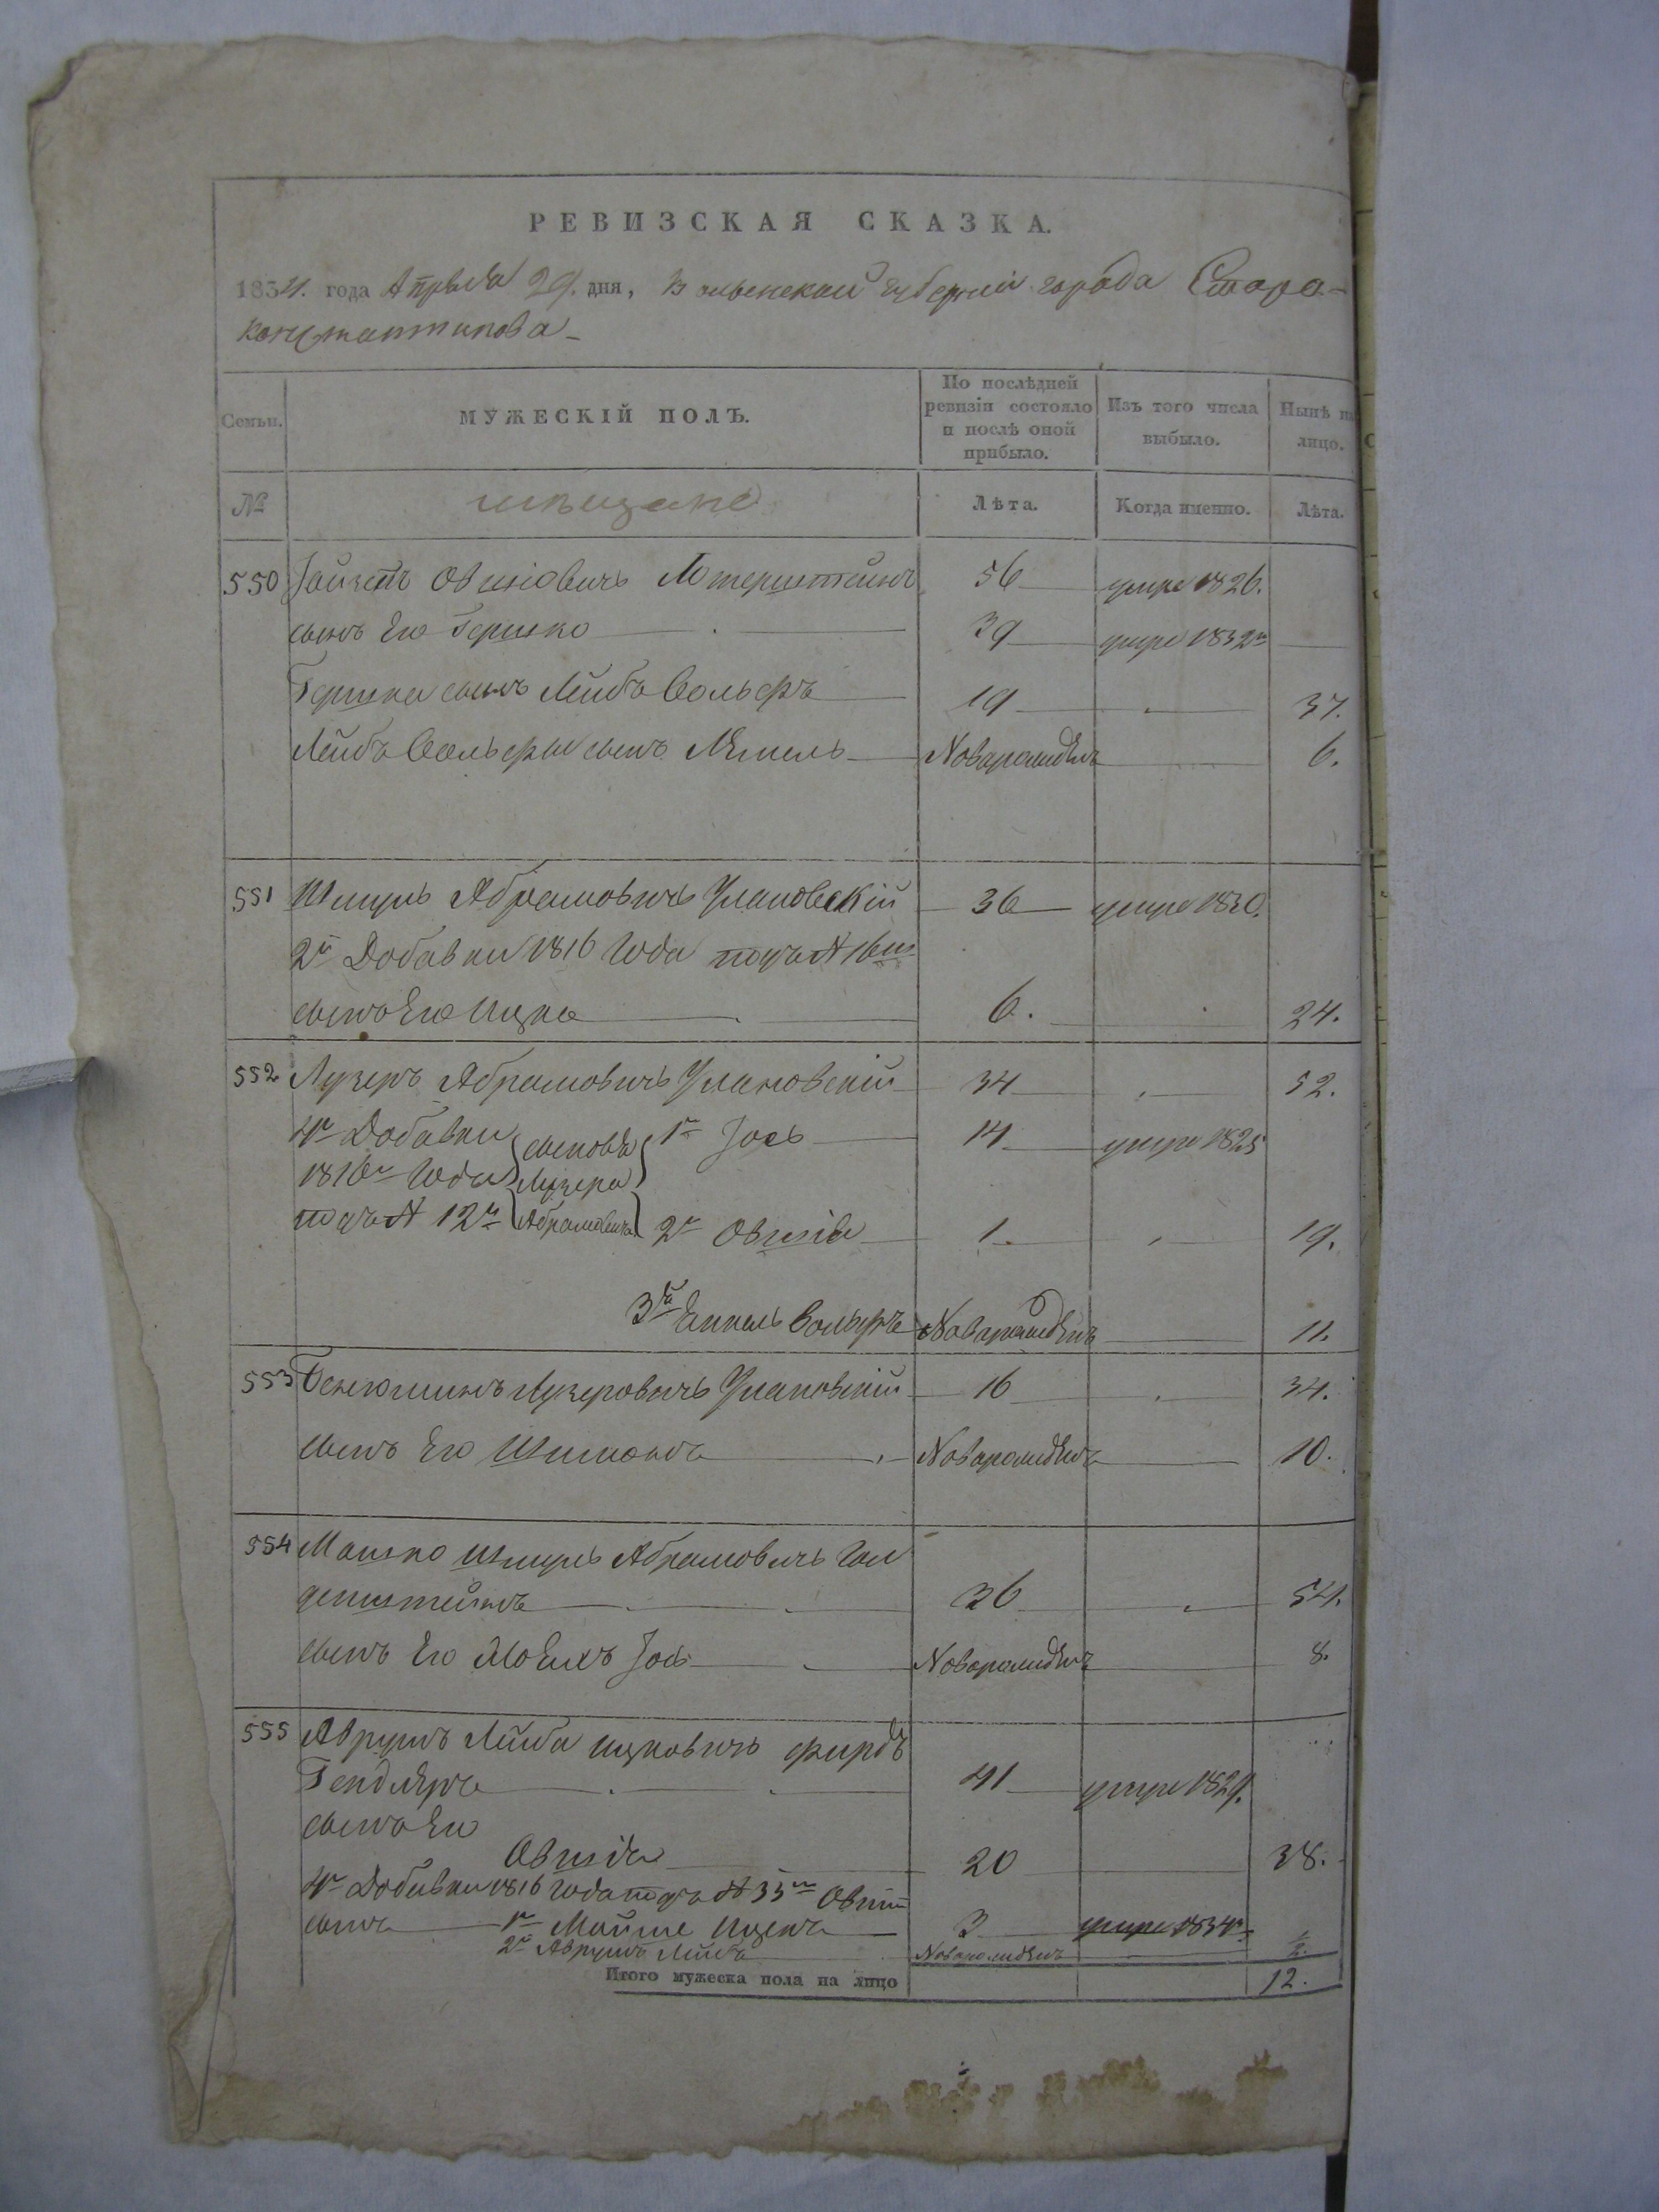 РЕВИЗСКАЯ СКАЗКА.
1834. года Апрѣля 29. дня, Волынской губерніи города Старо-
константинова
Семьи. МУЖЕСКІЙ ПОЛЪ. По послѣдней ревизіи состояло и послѣ оной прибыло. Изъ того числа выбыло. Нынѣ на лицо.
№ мѣщане Лѣта. Когда именно. Лѣта.
550 Овшіовичъ 56 умре 1826.
сынъ Его Гершко 39 умре 1832го
Гершка сынъ Лейба Вольфъ 19 37.
Лейба Вольфа сынъ Новарожденъ 6.
551 Шмуль Абрамовичъ Улановскій 36 умре 1830.
2й Добавки 1816 Года подъ № 16мъ
сынъ Его Ицко 6. 24.
552 Лузеръ Абрамовичъ Улановскій 34 52.
4й Добавки сыновья 1й Іось 14 умре 1825
1816го Года Лузера
подъ № 12м Абрамовича 2й Овшія 1. 19.
3й Вольфъ Новарожденъ 11.
553 Бенюминъ Лузеровичъ Улановскій 16 34.
сынъ Его Шимонъ Новарожденъ 10.
554 Мошко Шмуль Абрамовичъ Гол
денштейнъ 36 54.
сынъ Его Іось Новарожденъ 8.
555 Аврумъ Лейба Ицковичъ
Гендлеръ 41 умре 1829.
сынъ Его
Овшія 20 38.
4й Добавки 1816 Года подъ № 33м Овшіи
сынъ 1й Ицекъ 3 умре 1834го
2й Аврумъ Лейба Новарожденъ
Итого мужеска пола на лицо 12.